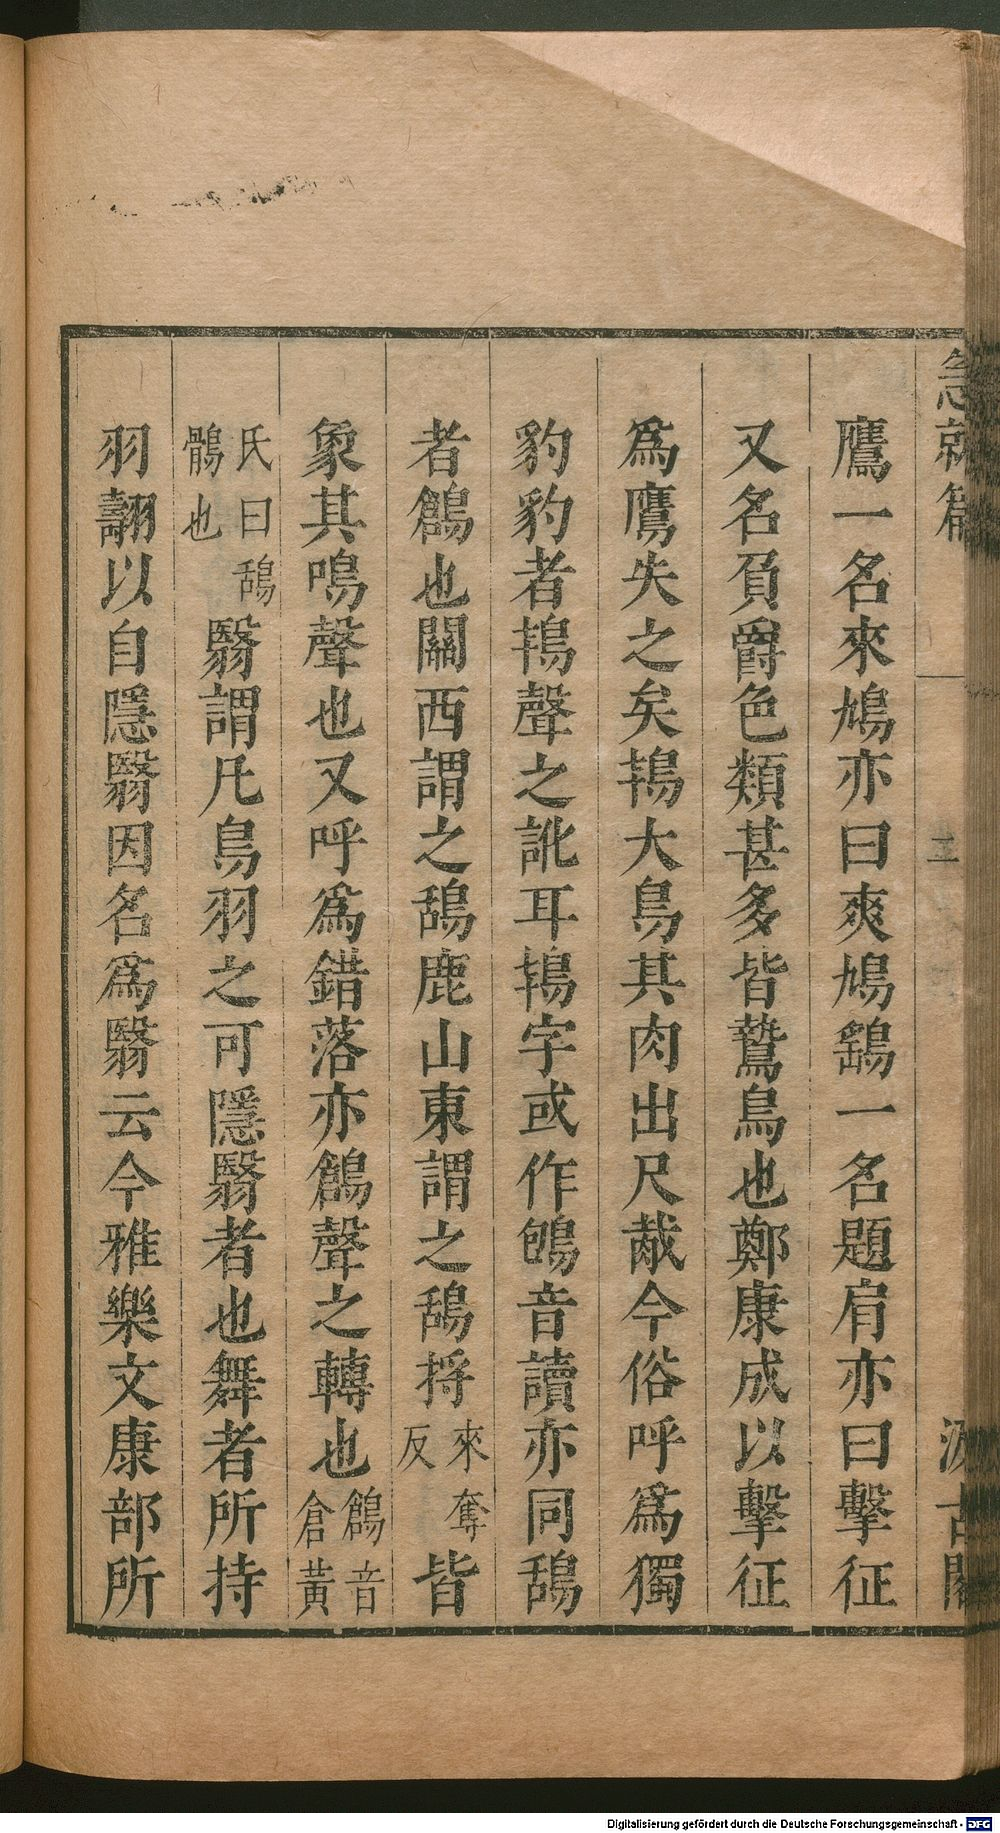 急就篇
汲古閣
鷹一名來鳩亦曰爽鳩鷂一名題肩亦曰擊征
又名負爵色類甚多皆鷙鳥也鄭康成以擊征
爲鷹失之矣鴇大鳥其肉出尺胾今俗呼爲獨
豹豹者鴇聲之訛耳鴇字或作鴇音讀亦同鴰
者鶬也關西謂之鴰鹿山東謂之鴰捋來奪反皆
象其鳴聲也又呼爲錯落亦鶬聲之轉也鶬音倉黃
氏曰鴰鶻也翳謂凡鳥羽之可隱翳者也舞者所持
羽翿以自隱翳因名爲翳云今雅樂文康部所
Digitalisierung gefördert durch die Deutsche Forschungsgemeinschaft - DFG